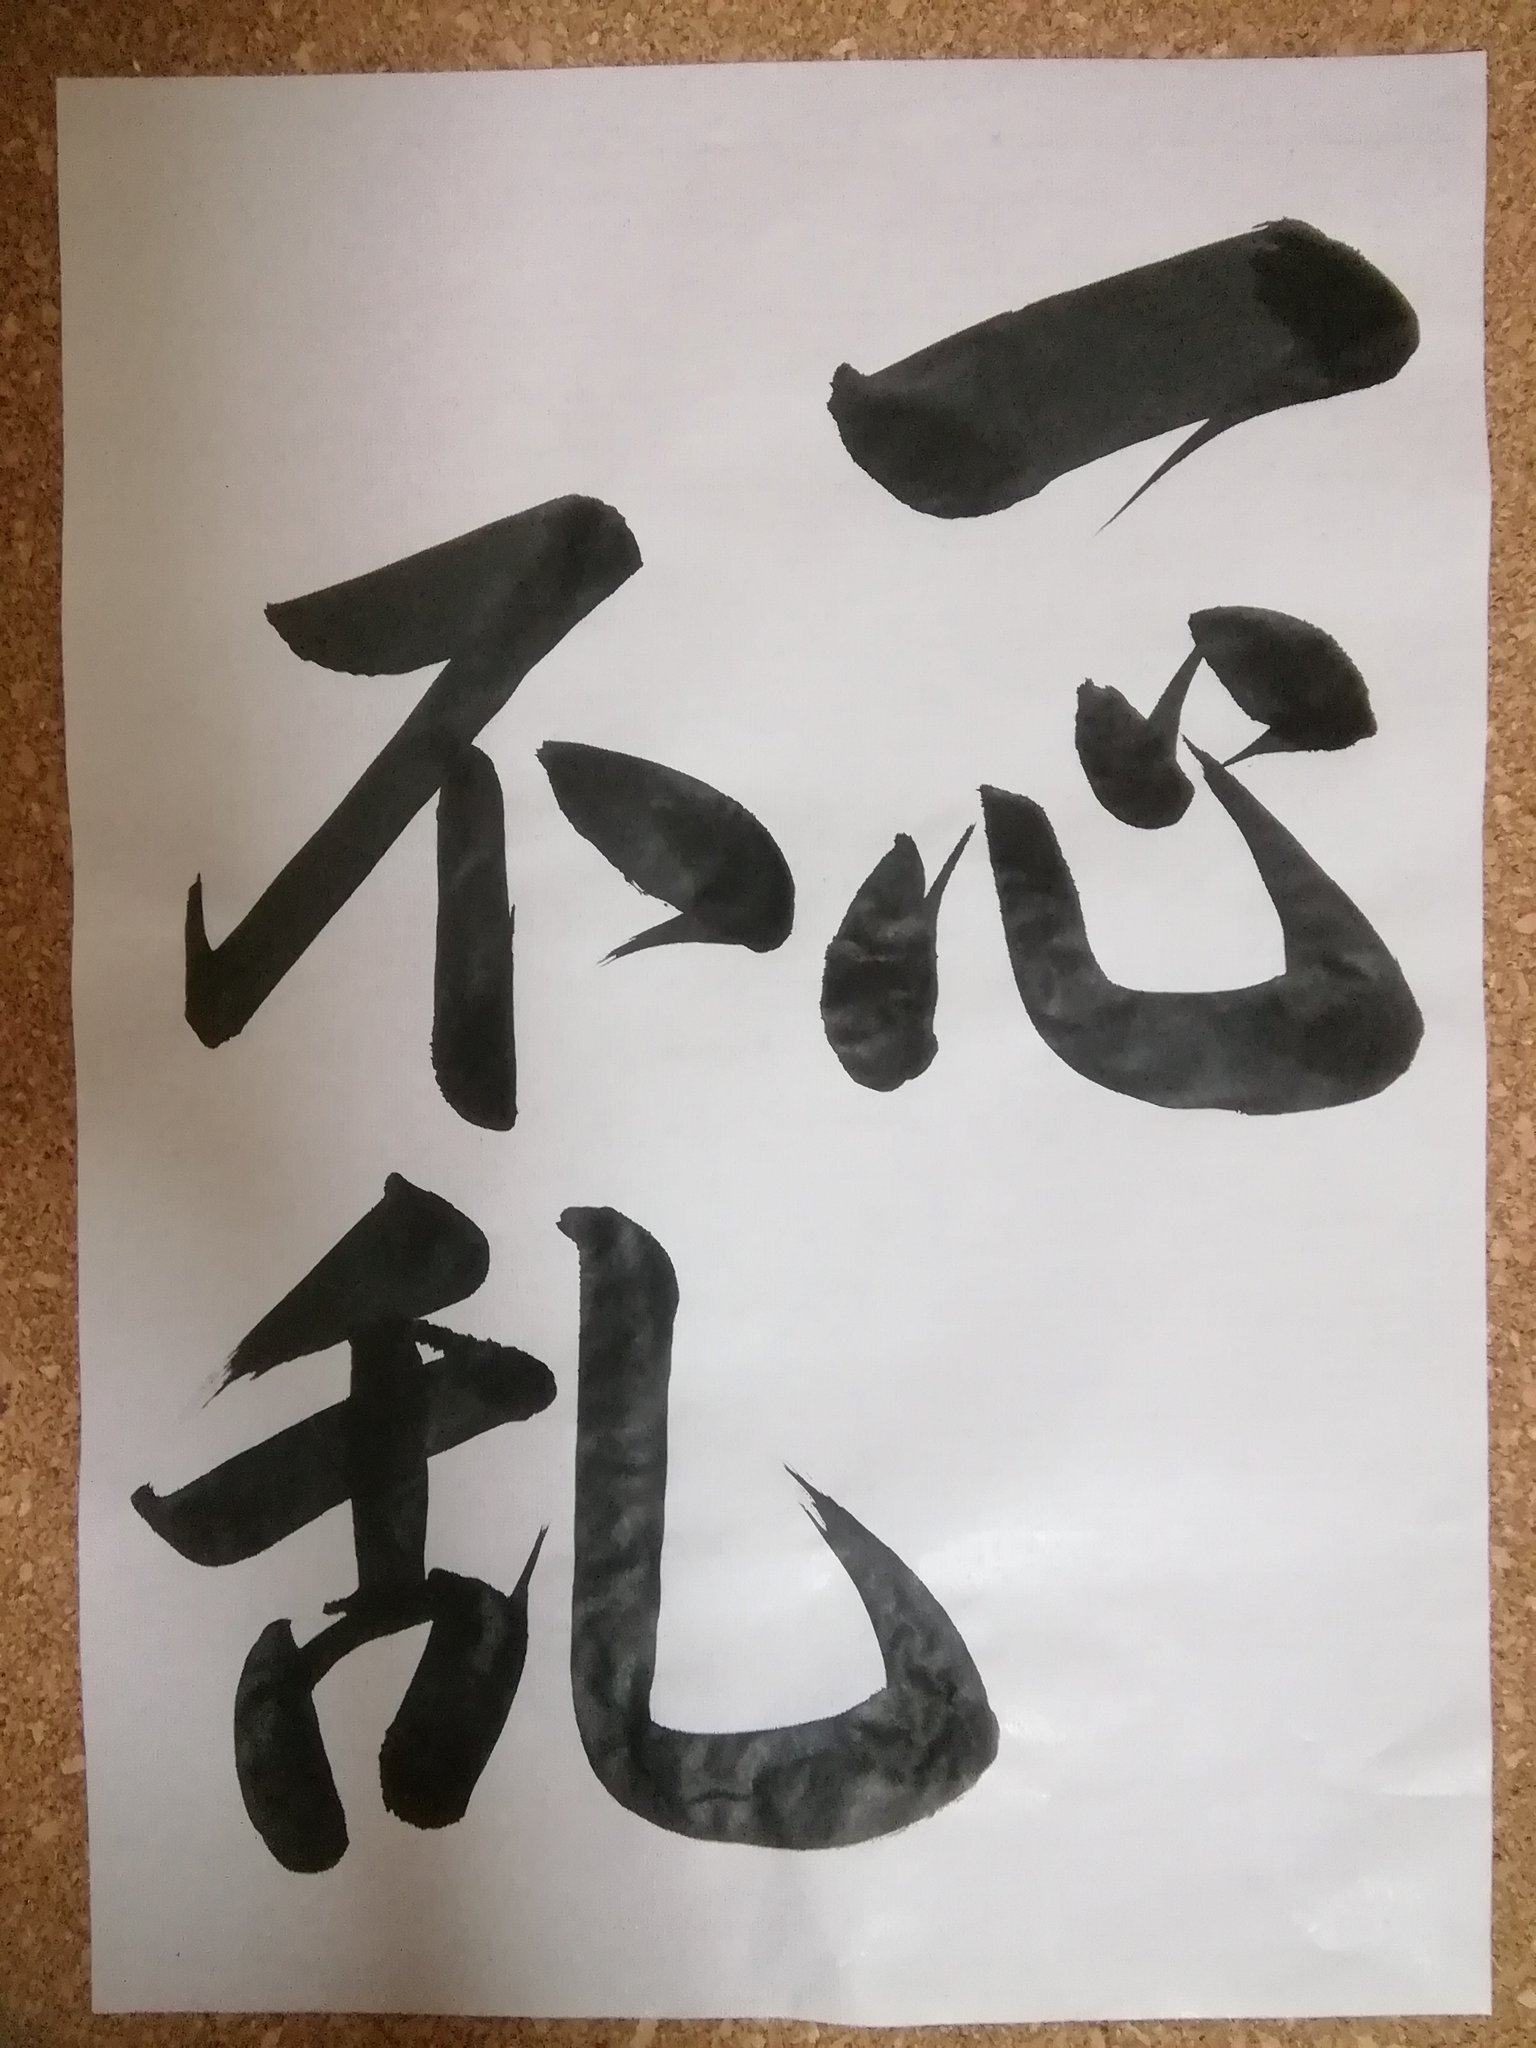 一心
不乱